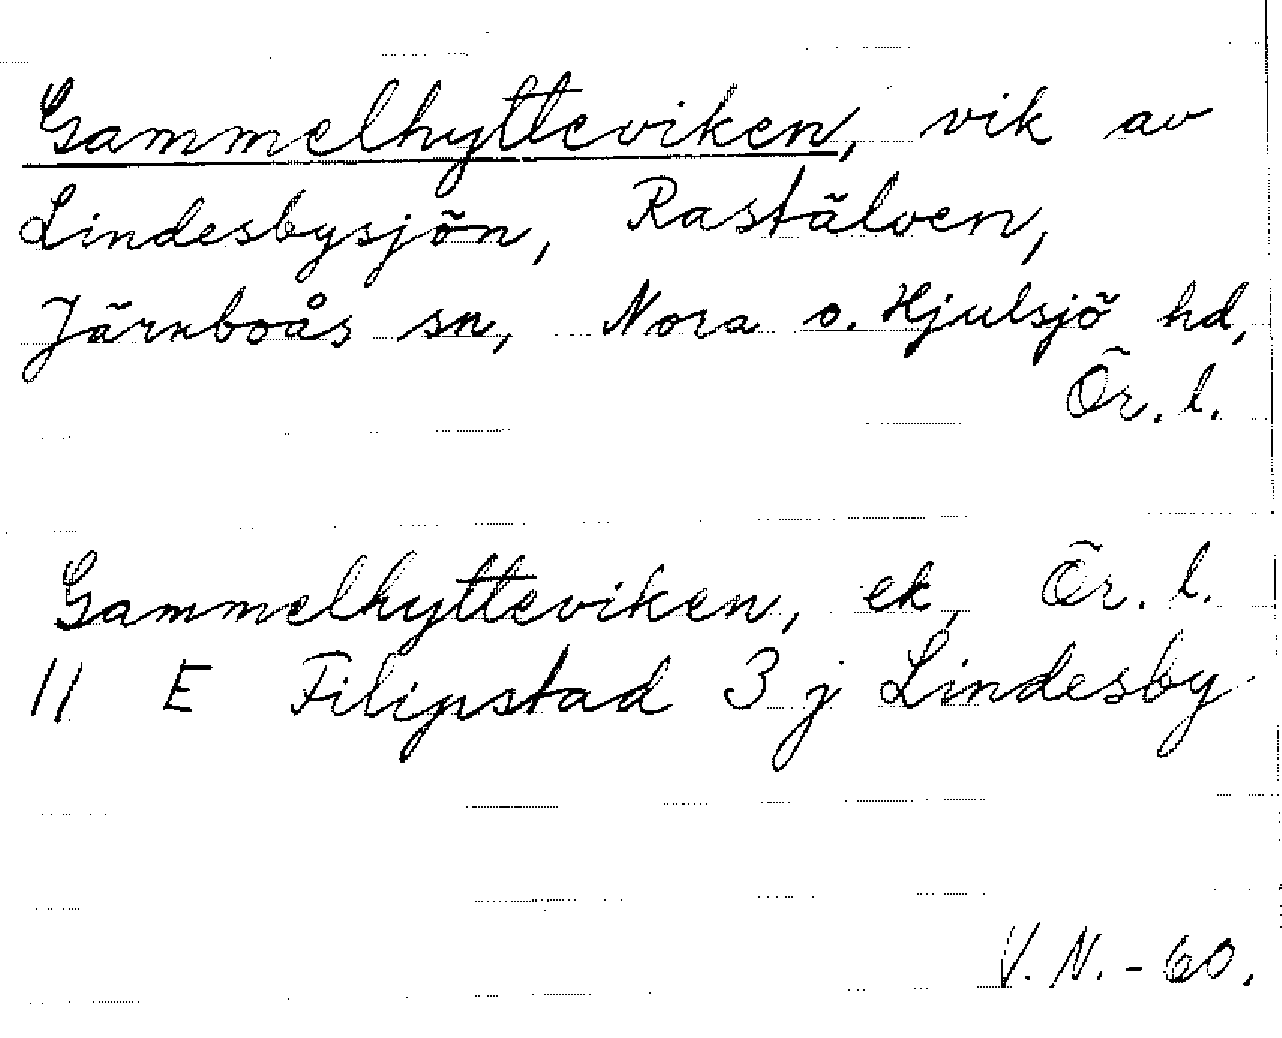 Gammelhytteviken, vik av
Lindesbysjön, Rastälven,
Järnboås sn, Nora o. Hjulsjö hd,
Ör. l.
Gammelhytteviken, ek, Ör. l.
11 E Filipstad 3 j Lindesby
V. N. - 60.